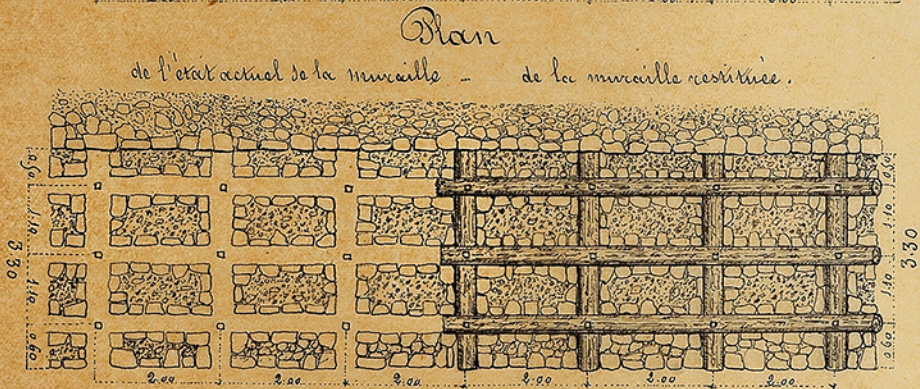 Plan
de l'état actuel de la muraille - de la muraille restituée.
0.50
0.50
1.10
1.10
3 30
3 30
1.10
1.10
0.60
0.60
2.00 2.00 2.00 2.00 2.00 2.00